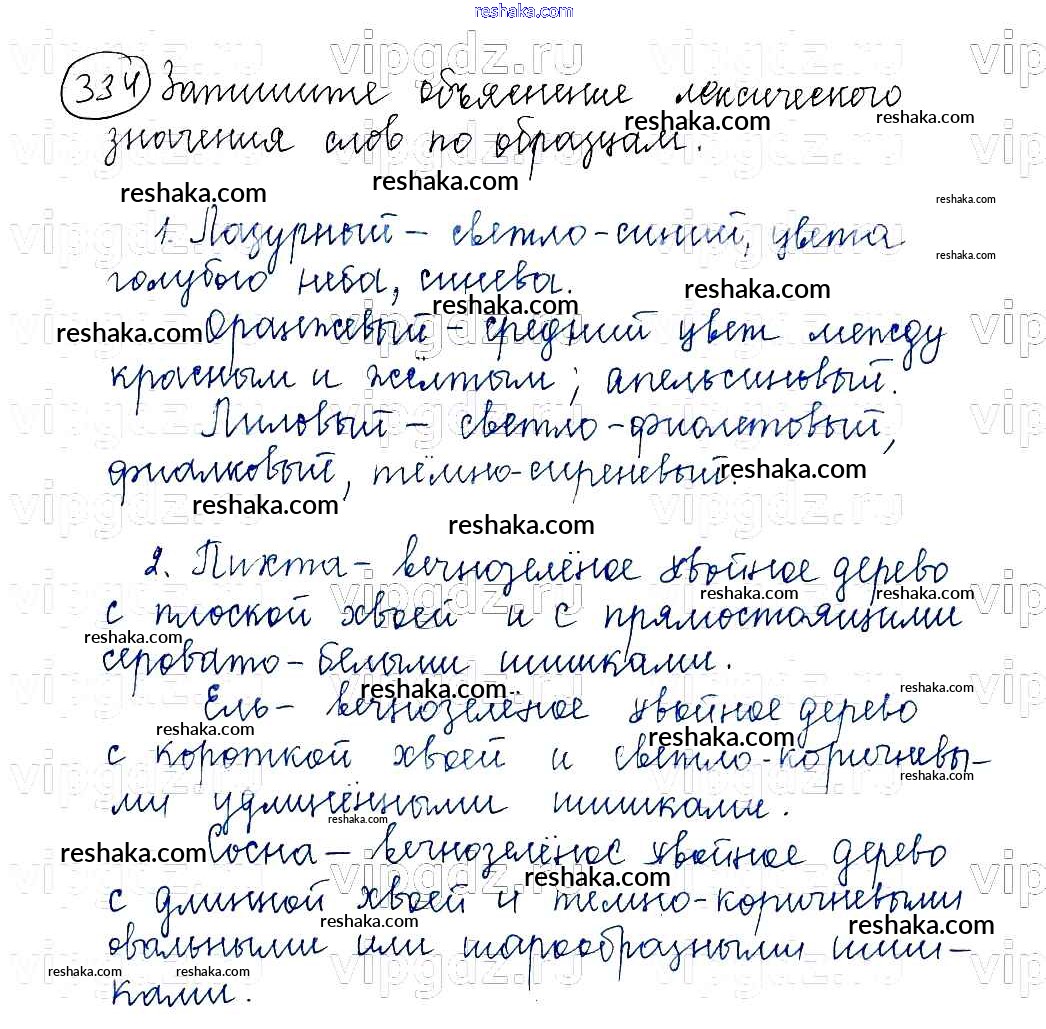 reshaka.com
334 Запишите объяснение лексического
значения слов по образцам.
1. Лазурный – светло-синий, цвета
голубого неба, синева.
Оранжевый – средний цвет между
красным и жёлтым; апельсиновый.
Лиловый – светло-фиолетовый,
фиалковый, тёмно-сиреневый.
2. Пихта – вечнозелёное хвойное дерево
с плоской хвоей и с прямостоящими
серовато-белыми шишками.
Ель – вечнозелёное хвойное дерево
с короткой хвоей и светло-коричневы-
ми удлинёнными шишками.
Сосна – вечнозелёное хвойное дерево
с длинной хвоей и тёмно-коричневыми
овальными или шарообразными шиш-
ками.